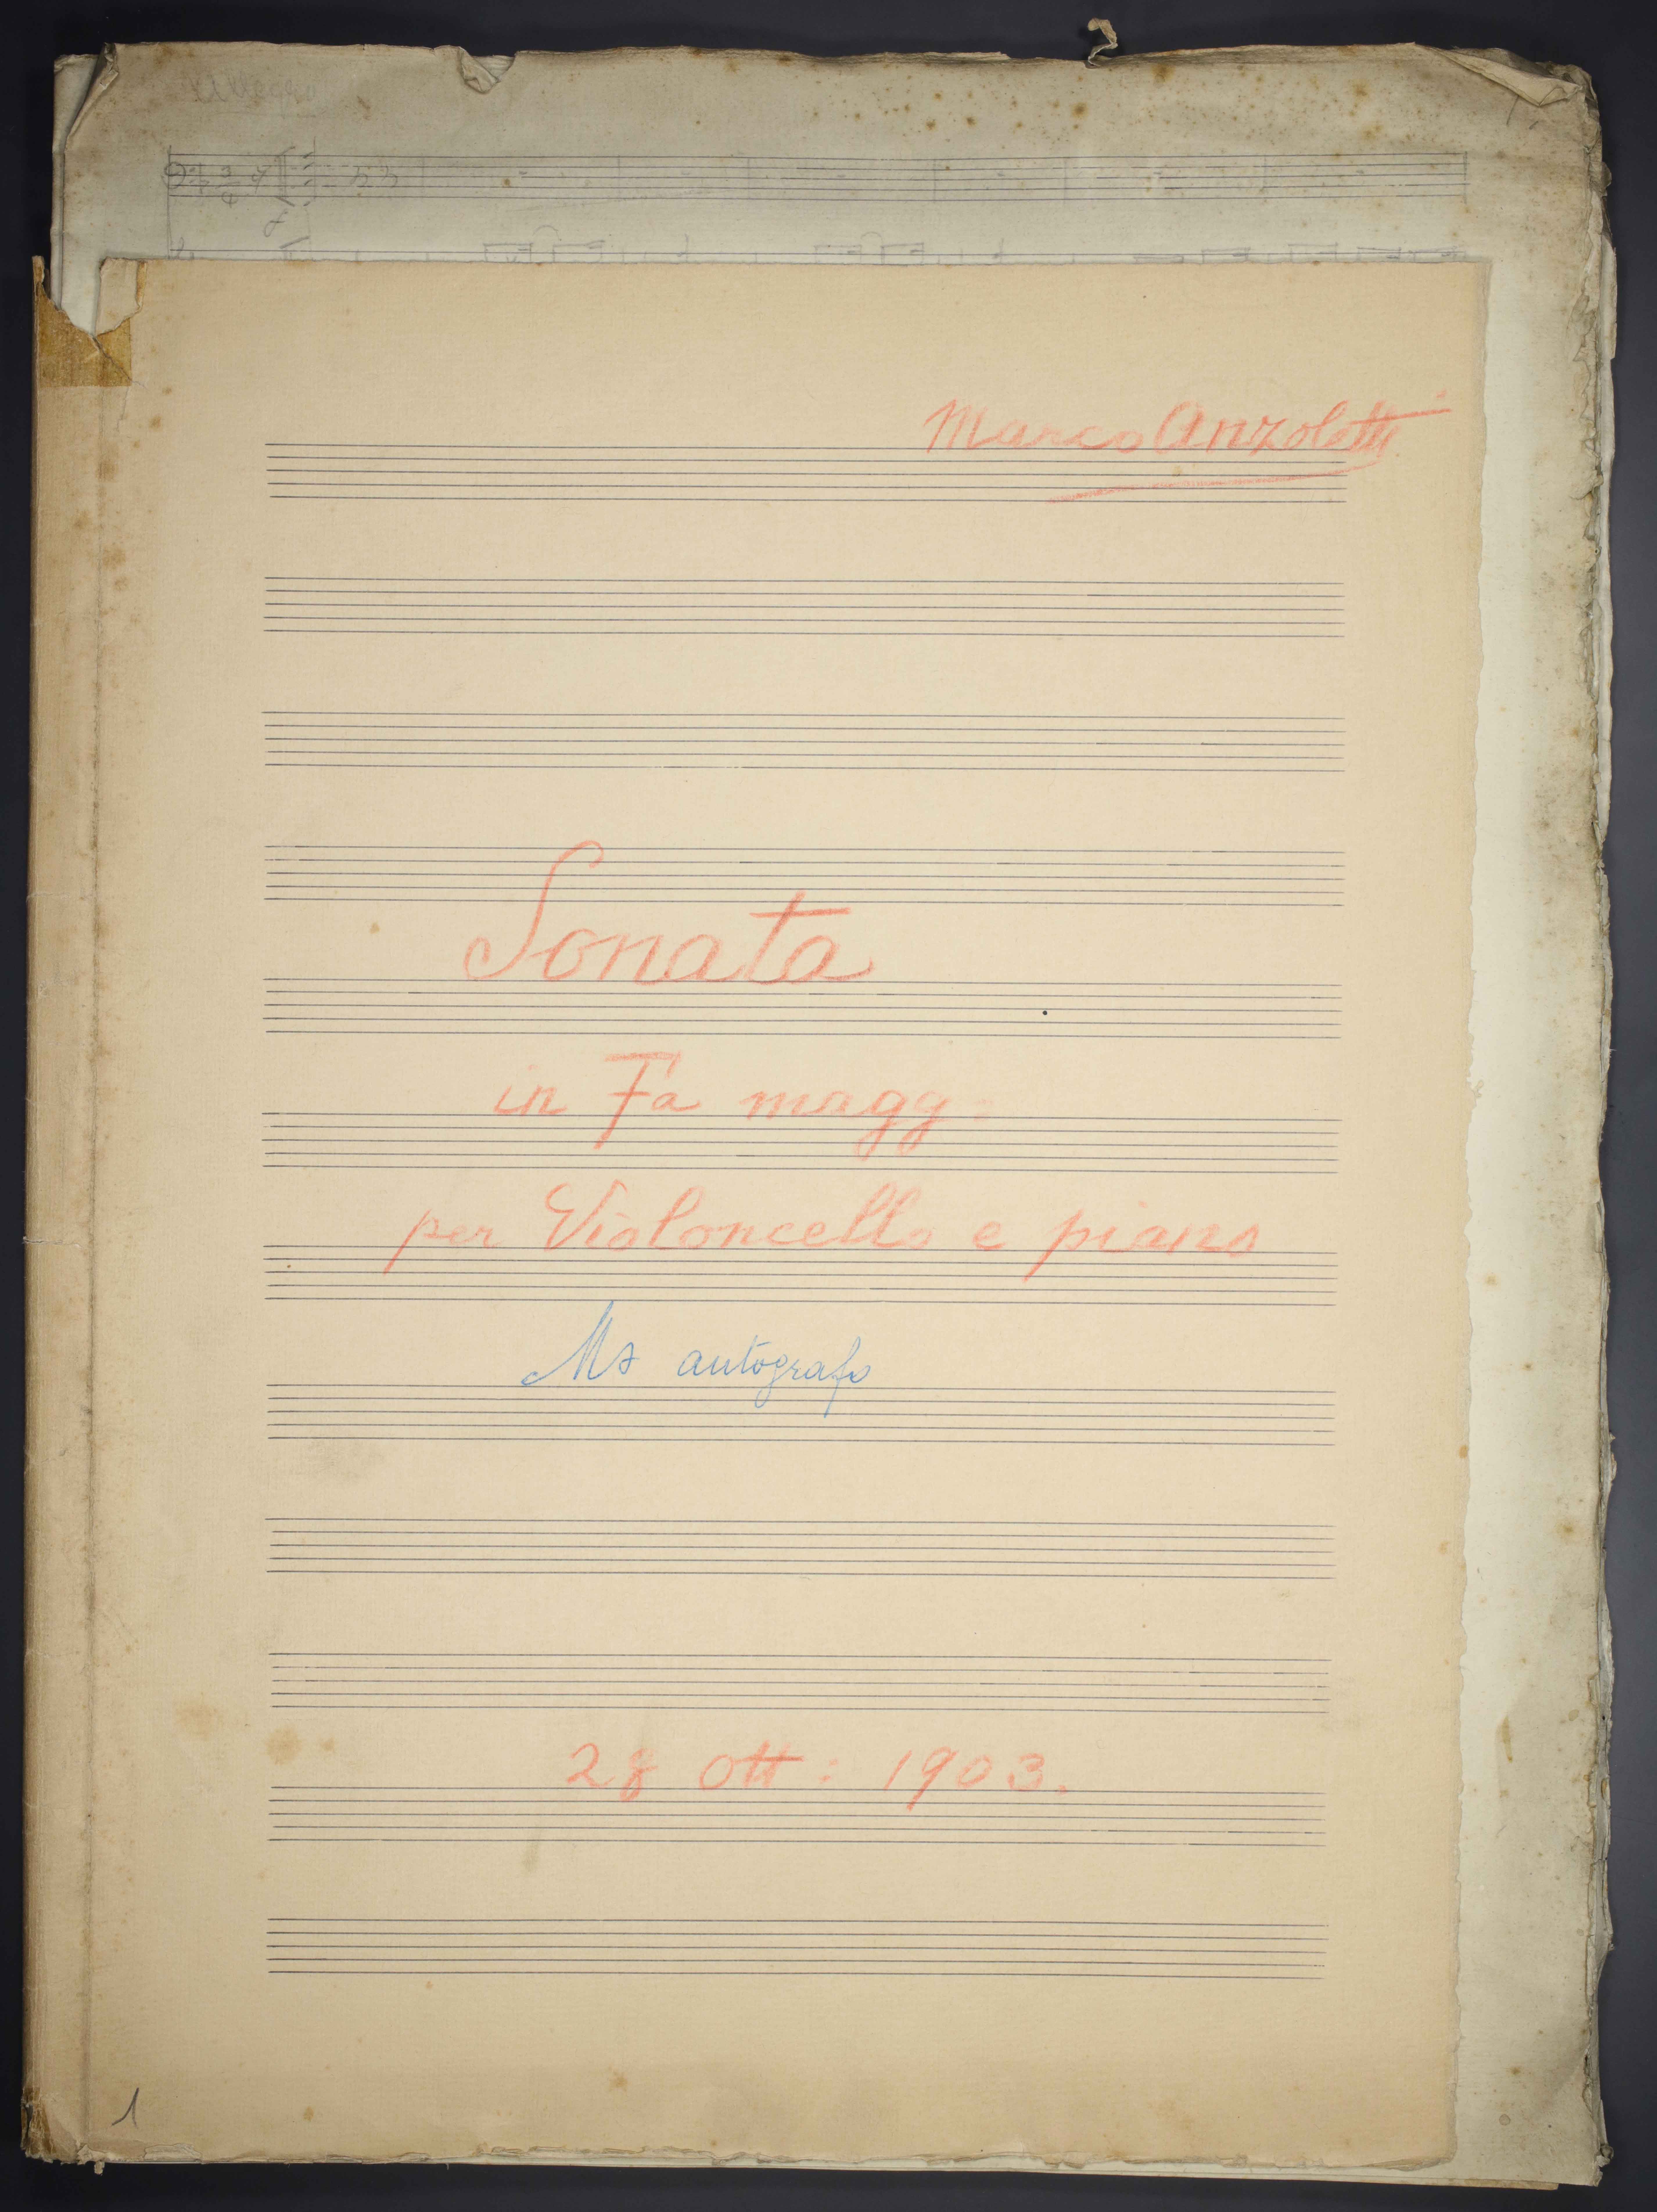 Allegro
Marco Anzoletti
Sonata
in Fa magg:
per Violoncello e piano
Ms autografo
28 ott: 1903.
1